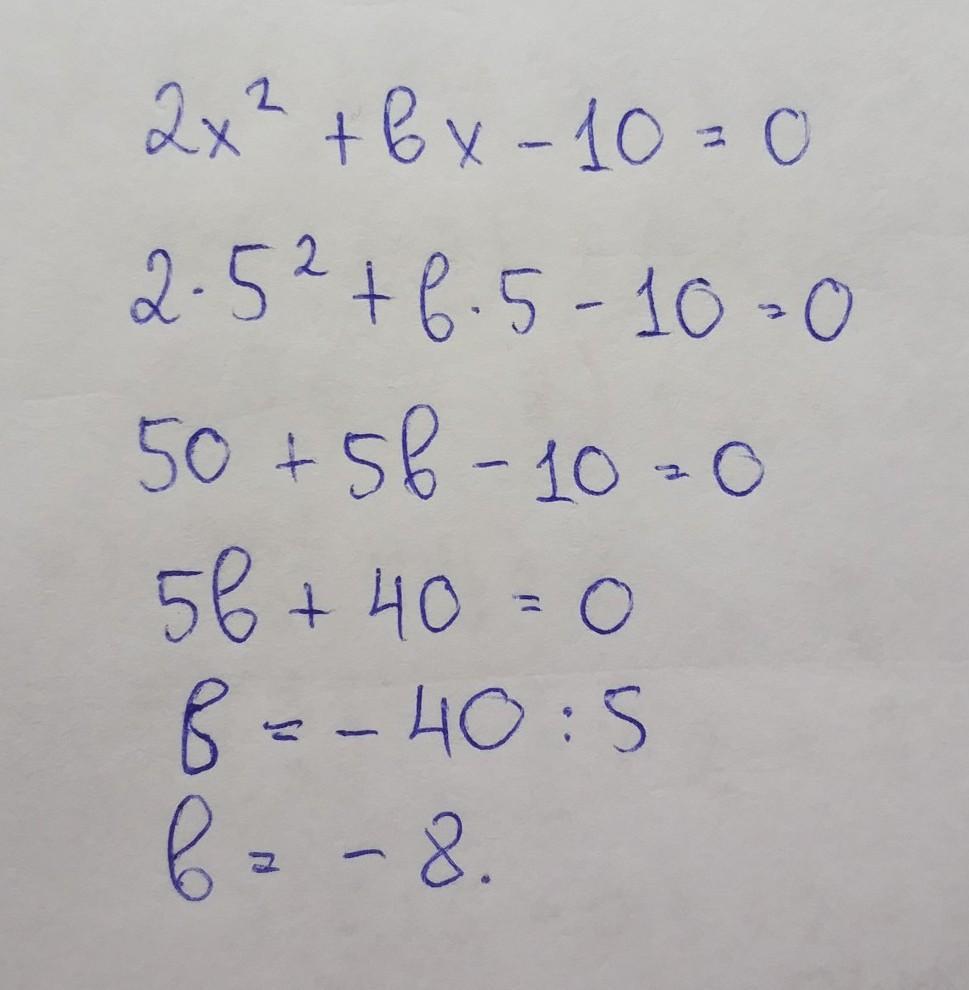 2x² + bx - 10 = 0
2·5² + b·5 - 10 = 0
50 + 5b - 10 = 0
5b + 40 = 0
b = - 40 : 5
b = - 8.